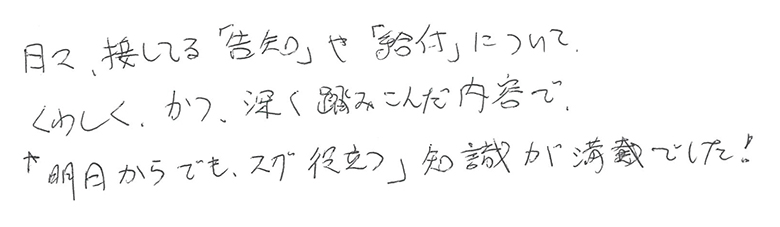 日々、接してる「告知」や「給付」について、
くわしく、かつ、深く踏みこんだ内容で、
"明日からでも、スグ役立つ」知識が満載でした！